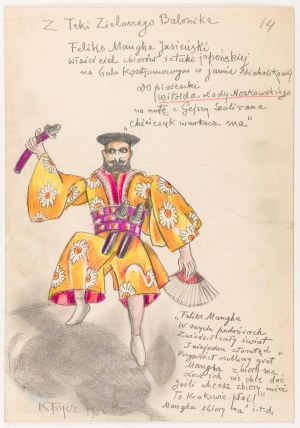 Z Teki Zielonego Balonika
14
Feliks Mangha Jasieński
właściciel zbiorów sztuki japońskiej
na Balu Kostjumowym w Jamie Michalika
do piosenki
Witolda Lady Noskowskiego
na nutę z Gejszy
"Chińczyk warkocz ma"
"Feliks Mangha
W swych podróżach
Zwiedził cały świat
I niejeden
Przywiózł
Mangha zbiory ma
nie chce dać
Jeśli chcesz zbiory mieć
To Krakowie płać!
Mangha zbiory ma" i t.d.